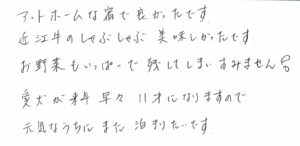 アットホームな宿で良かったです
近江牛のしゃぶしゃぶ 美味しかったです
お野菜もいっぱいで残してしまいすみません
愛犬が来年早々 11才になりますので
元気なうちに また 泊まりたいです